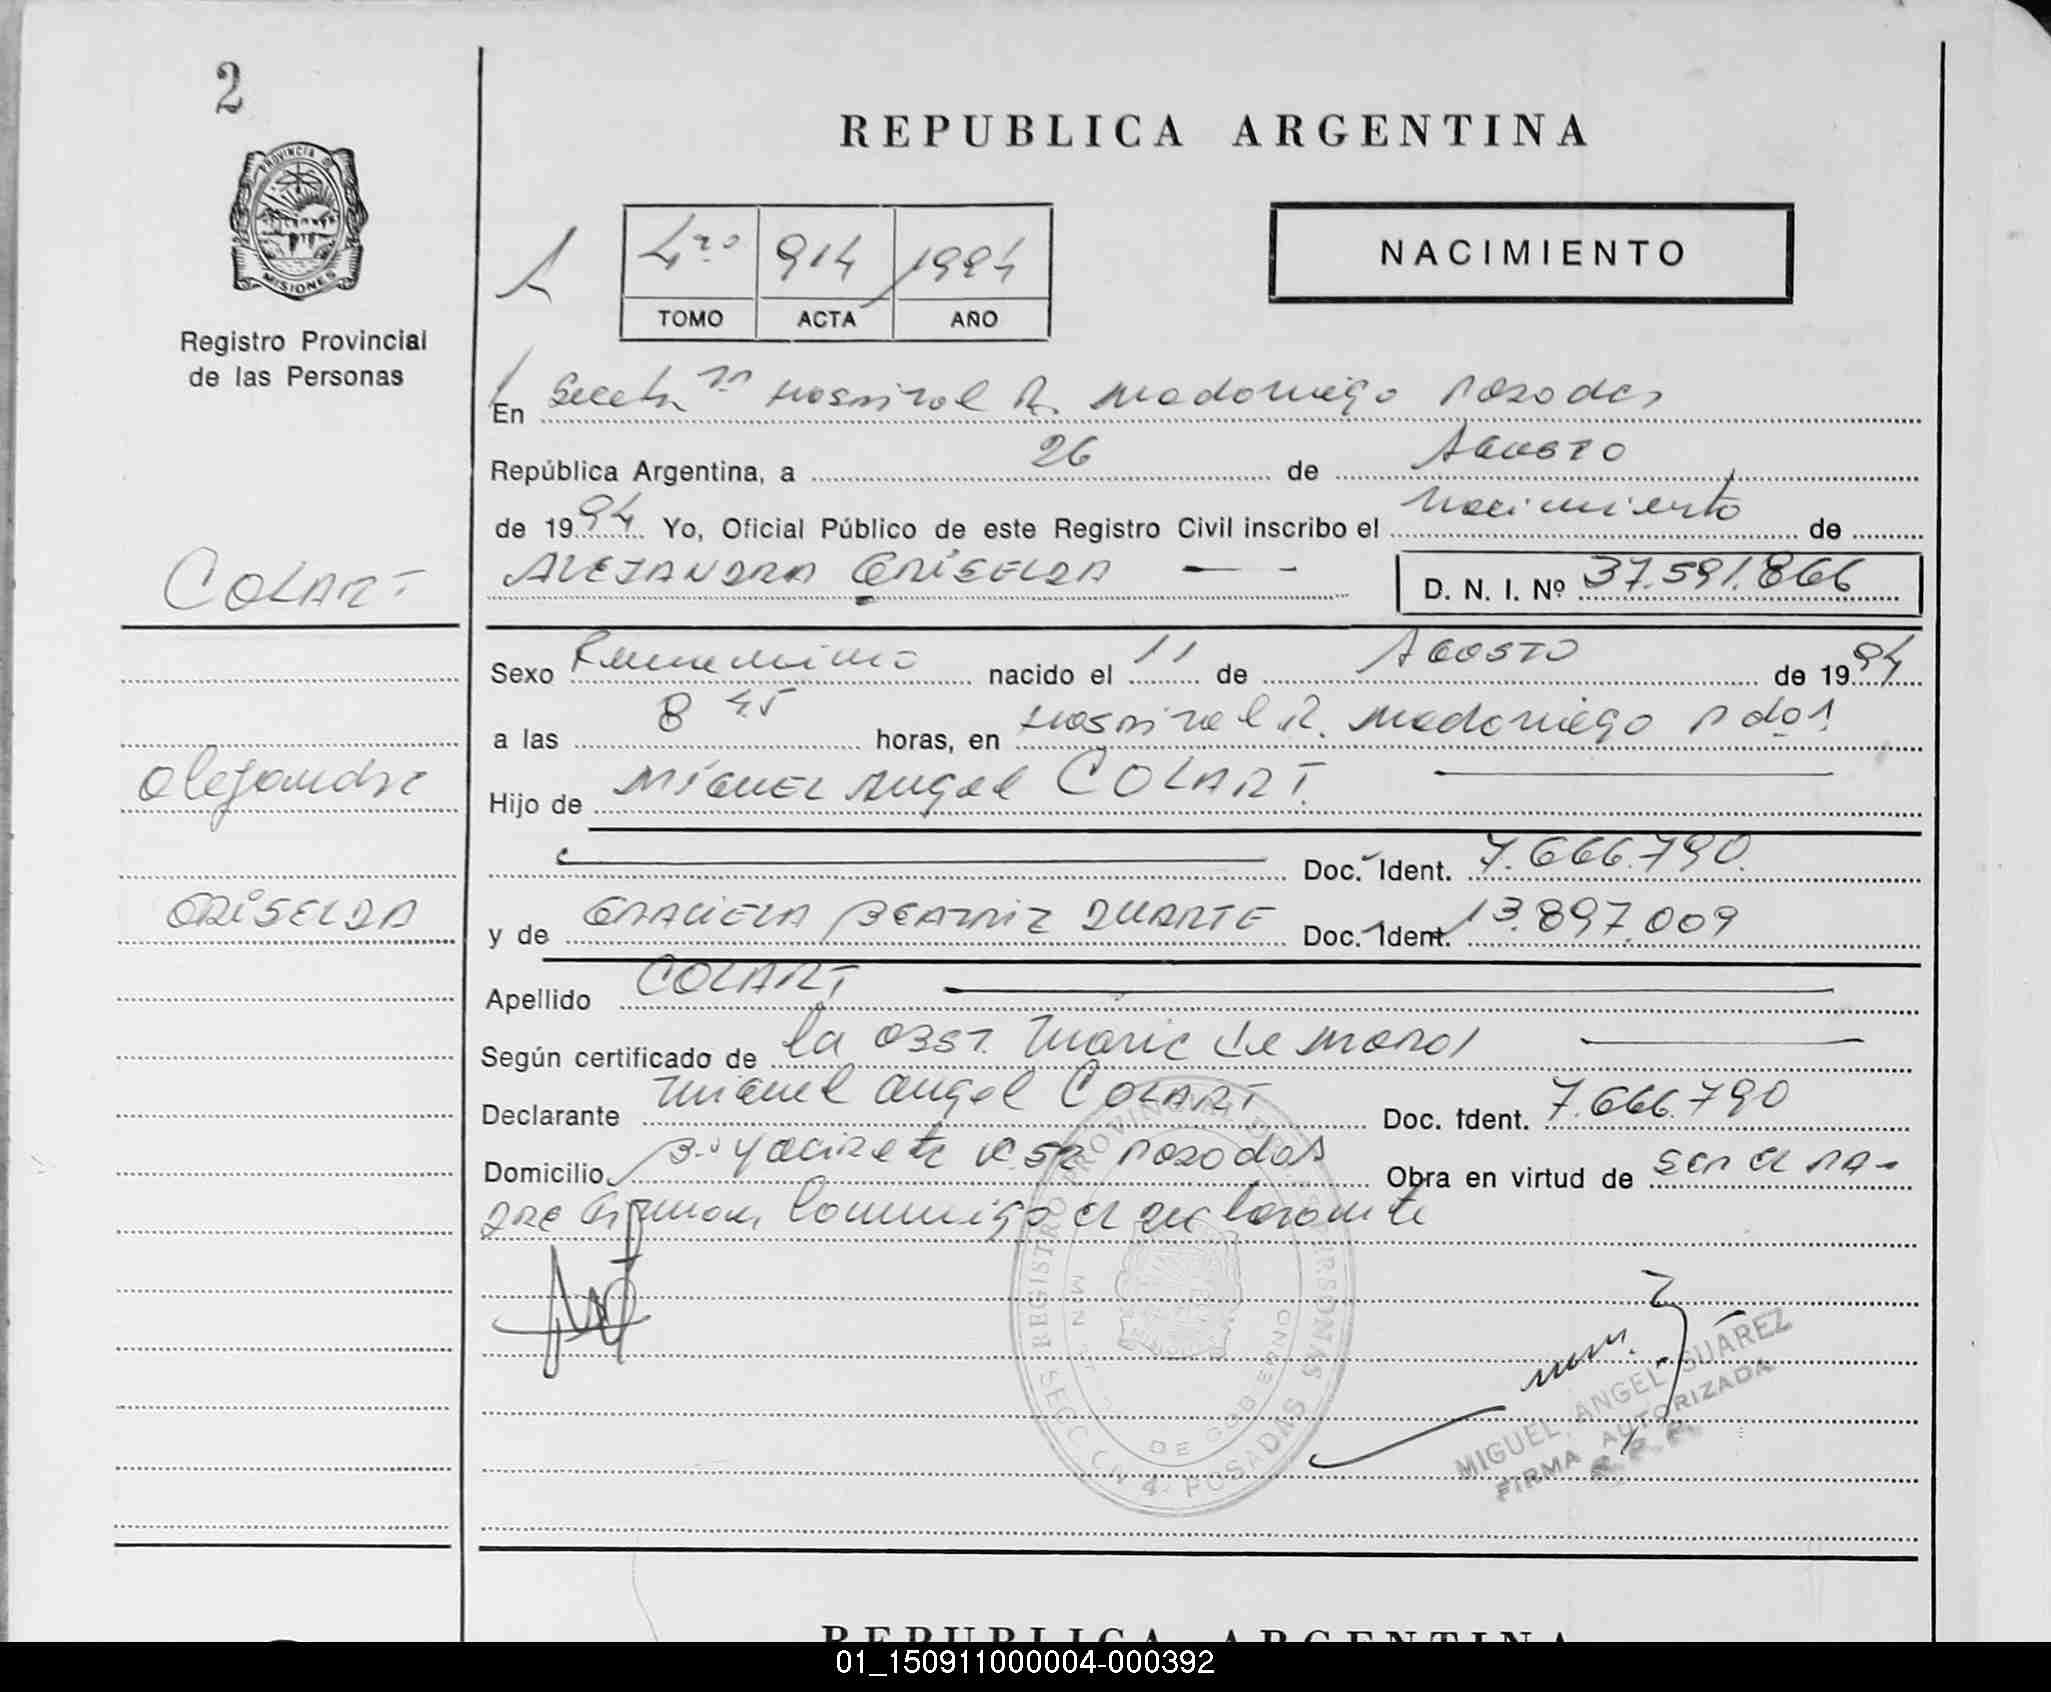 2
PROVINCIA DE
MISIONES
Registro Provincial
de las Personas
COLART
Alejandra
GRISELDA
REPUBLICA ARGENTINA
4to 914 1994
TOMO ACTA AÑO
NACIMIENTO
En Hospital R. Madariaga Posadas
República Argentina, a 26 de Agosto
de 1994 Yo, Oficial Público de este Registro Civil inscribo el Nacimiento de
ALEJANDRA GRISELDA — - D. N. I. Nº 37.591.866
Sexo Femenino nacido el 11 de AGOSTO de 1994
a las 8 45 horas, en Hospital R. Madariaga Pdas
Hijo de MIGUEL Angel COLART.
Doc. Ident. 7.666.790.
y de GRACIELA BEATRIZ DUARTE Doc. Ident. 13.897.009
Apellido COLART
Según certificado de la OBST. Maria de
Declarante Miguel Angel COLART Doc. Ident. 7.666.790
Domicilio Bº Yacireta Posadas Obra en virtud de SER EL PA-
DRE Firman Conmigo el declarante
REGISTRO PROVINCIAL DE LAS PERSONAS
SECCION 4 POSADAS
DE GOBIERNO
MIGUEL ANGEL SUAREZ
FIRMA AUTORIZADA
R. P. P.
REPUBLICA ARGENTINA
01_150911000004-000392